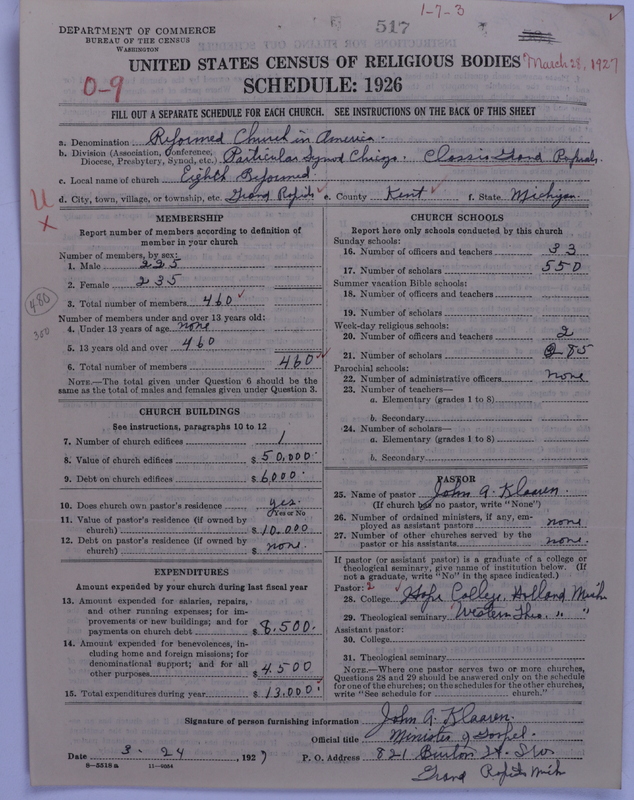 1-7-3
517
DEPARTMENT OF COMMERCE
BUREAU OF THE CENSUS
WASHINGTON
UNITED STATES CENSUS OF RELIGIOUS BODIES
March 28, 1927
SCHEDULE: 1926
0-9
FILL OUT A SEPARATE SCHEDULE FOR EACH CHURCH. SEE INSTRUCTIONS ON THE BACK OF THIS SHEET
a. Denomination Reformed Church in America.
b. Division (Association, Conference, Diocese, Presbytery, Synod, etc.) Particular Synod Chicago. Classis Grand Rapids.
c. Local name of church Eighth Reformed
d. City, town, village, or township, etc. Grand Rapids e. County Kent f. State Michigan
U
X
MEMBERSHIP
Report number of members according to definition of
member in your church
Number of members, by sex:
1. Male 225
2. Female 235
3. Total number of members 460
480
Number of members under and over 13 years old:
4. Under 13 years of age none
5. 13 years old and over 460
6. Total number of members 460
NOTE.—The total given under Question 6 should be the
same as the total of males and females given under Question 3.
CHURCH BUILDINGS
See instructions, paragraphs 10 to 12
7. Number of church edifices 1
8. Value of church edifices $ 50,000.
9. Debt on church edifices $ 6000.
10. Does church own pastor's residence yes.
Yes or No
11. Value of pastor's residence (if owned by
church) $ 10.000
12. Debt on pastor's residence (if owned by
church) $ none.
EXPENDITURES
Amount expended by your church during last fiscal year
13. Amount expended for salaries, repairs,
and other running expenses; for im-
provements or new buildings; and for
payments on church debt $ 8.500.
14. Amount expended for benevolences, in-
cluding home and foreign missions; for
denominational support; and for all
other purposes $ 4500
15. Total expenditures during year $ 13.000.
CHURCH SCHOOLS
Report here only schools conducted by this church
Sunday schools:
16. Number of officers and teachers 33
17. Number of scholars 550
Summer vacation Bible schools:
18. Number of officers and teachers
19. Number of scholars
Week-day religious schools:
20. Number of officers and teachers 2
21. Number of scholars 85
Parochial schools:
22. Number of administrative officers none
23. Number of teachers—
a. Elementary (grades 1 to 8)
b. Secondary
24. Number of scholars—
a. Elementary (grades 1 to 8)
b. Secondary
PASTOR
25. Name of pastor John A. Klaaren.
(If church has no pastor, write "None")
26. Number of ordained ministers, if any, em-
ployed as assistant pastors none
27. Number of other churches served by the
pastor or his assistants none.
If pastor (or assistant pastor) is a graduate of a college or
theological seminary, give name of institution below. (If
not a graduate, write "No" in the space indicated.)
Pastor: 2
28. College Hope College, Holland Mich
29. Theological seminary Western Theo. " "
Assistant pastor:
30. College
31. Theological seminary
NOTE.—Where one pastor serves two or more churches,
Questions 28 and 29 should be answered only on the schedule
for one of the churches; on the schedules for the other churches,
write "See schedule for church."
Signature of person furnishing information John A. Klaaren.
Official title Minister of Gospel.
Date 3-24, 1927 P. O. Address 821 Burton St. S.W.
Grand Rapids Mich
8-5518a 11-9084